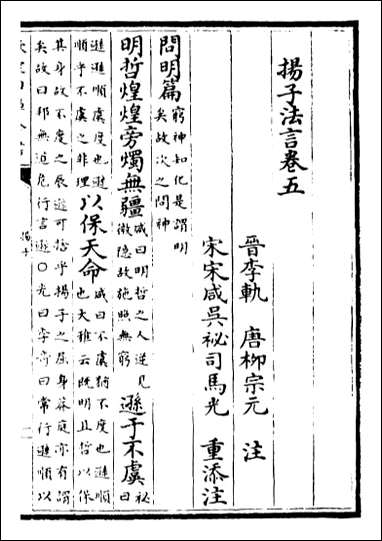 揚子法言卷五
晉李軌　唐柳宗元　注
宋宋咸吳祕司馬光　重添注
問明篇窮神知化是謂明
矣故次之問神
明哲煌煌旁燭無疆咸曰明哲之人逆見
微隱故施照無窮遜于不虞祕曰
遜遜順虞度也遜
順乎不虞之非理以保天命咸曰不虞猶不度也遜順
也大雅云既明且哲以保
其身故不度之辰遜可忽乎揚子之屈身莽庭亦有謂
矣故曰邦無道危行言遜○光曰李奇曰常行遜順以
揚子